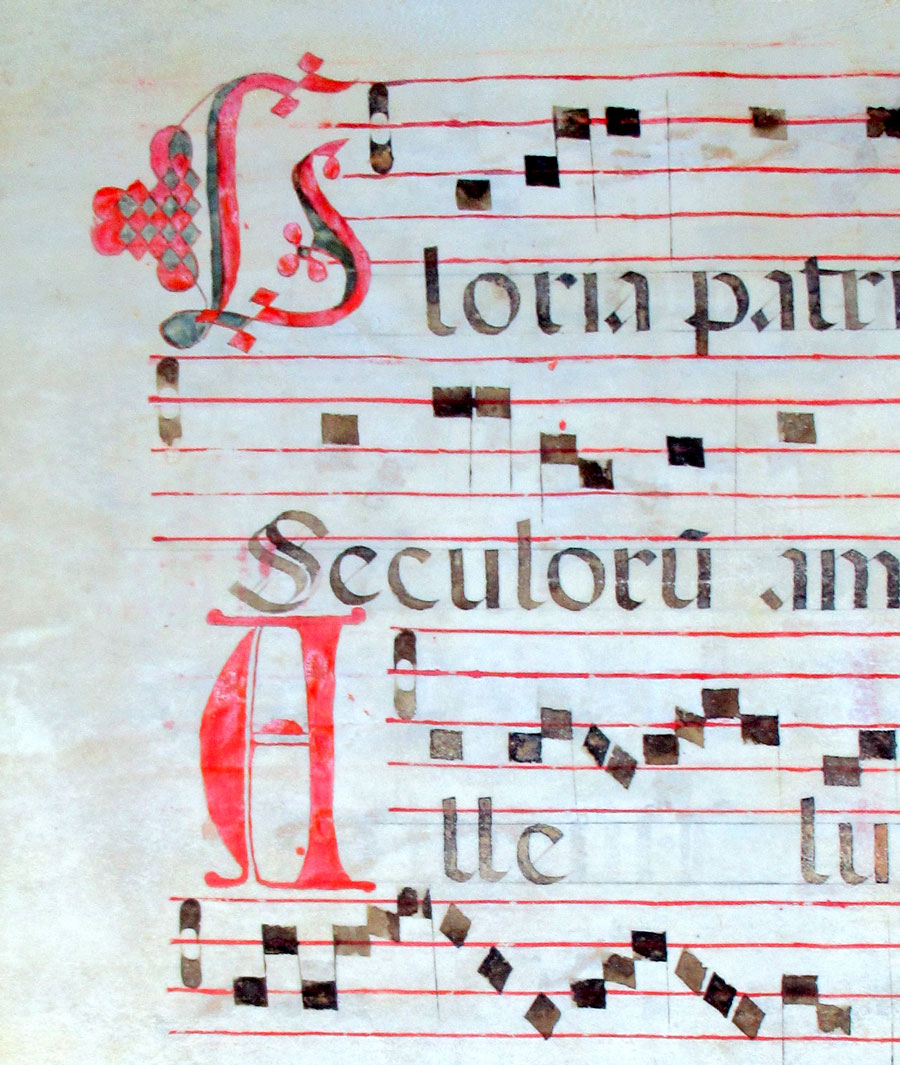 Gloria patri
Seculorū am
Alle lu